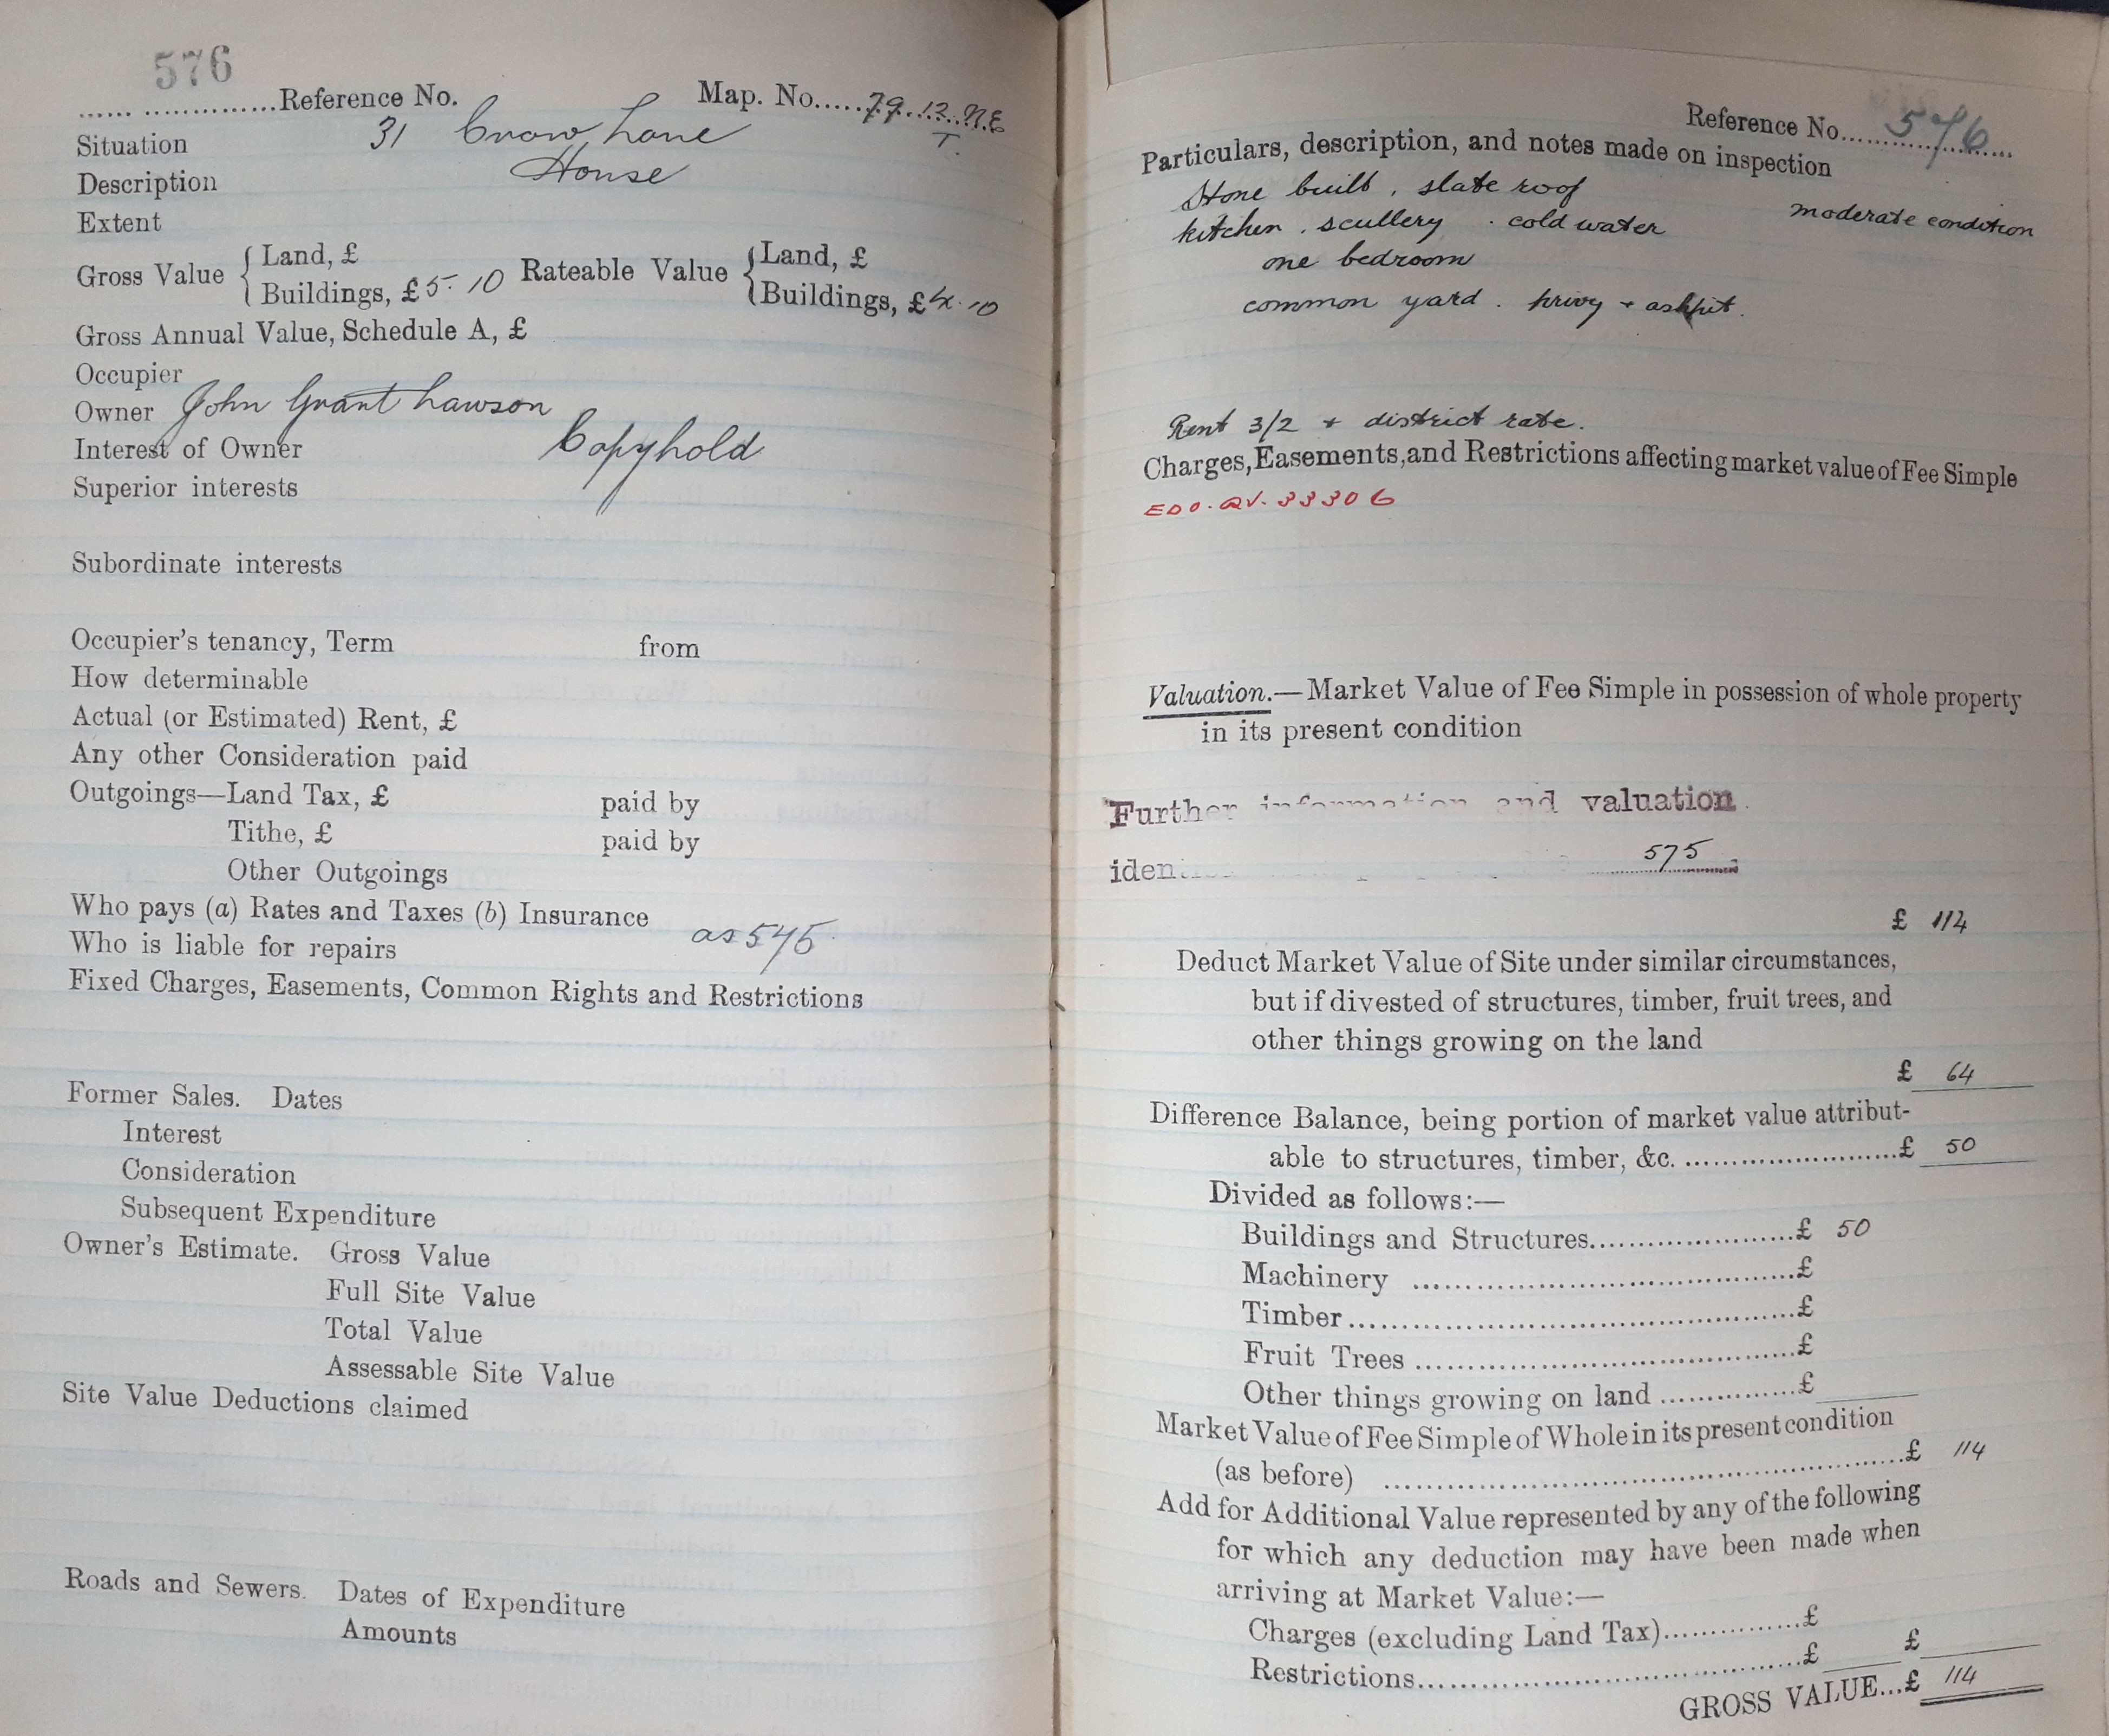 576
...... ..............Reference No. Map. No.....79.12.NE
T.
Situation 31 Crow Lane
Description House
Extent
Gross Value { Land, £ Rateable Value { Land, £
Buildings, £5-10 Buildings, £4.10
Gross Annual Value, Schedule A, £
Occupier
Owner John Grant Lawson
Interest of Owner Copyhold
Superior interests
Subordinate interests
Occupier's tenancy, Term from
How determinable
Actual (or Estimated) Rent, £
Any other Consideration paid
Outgoings—Land Tax, £ paid by
Tithe, £ paid by
Other Outgoings
Who pays (a) Rates and Taxes (b) Insurance
Who is liable for repairs as 575
Fixed Charges, Easements, Common Rights and Restrictions
Former Sales. Dates
Interest
Consideration
Subsequent Expenditure
Owner's Estimate. Gross Value
Full Site Value
Total Value
Assessable Site Value
Site Value Deductions claimed
Roads and Sewers. Dates of Expenditure
Amounts
Reference No.....576
Particulars, description, and notes made on inspection
Stone built, slate roof
moderate condition
kitchen, scullery . cold water
one bedroom
common yard. privy + ashpit.
Rent 3/2 + district rate.
Charges, Easements, and Restrictions affecting market value of Fee Simple
EDO.QV.33306
Valuation.—Market Value of Fee Simple in possession of whole property
in its present condition
Further information and valuation
575
£ 114
Deduct Market Value of Site under similar circumstances,
but if divested of structures, timber, fruit trees, and
other things growing on the land
£ 64
Difference Balance, being portion of market value attribut-
able to structures, timber, &c. ........................£ 50
Divided as follows:—
Buildings and Structures......................£ 50
Machinery ......................................£
Timber............................................£
Fruit Trees ......................................£
Other things growing on land ..............£
Market Value of Fee Simple of Whole in its present condition
(as before) ......................................................£ 114
Add for Additional Value represented by any of the following
for which any deduction may have been made when
arriving at Market Value:—
Charges (excluding Land Tax)..............£
Restrictions......................................£ £
GROSS VALUE...£ 114